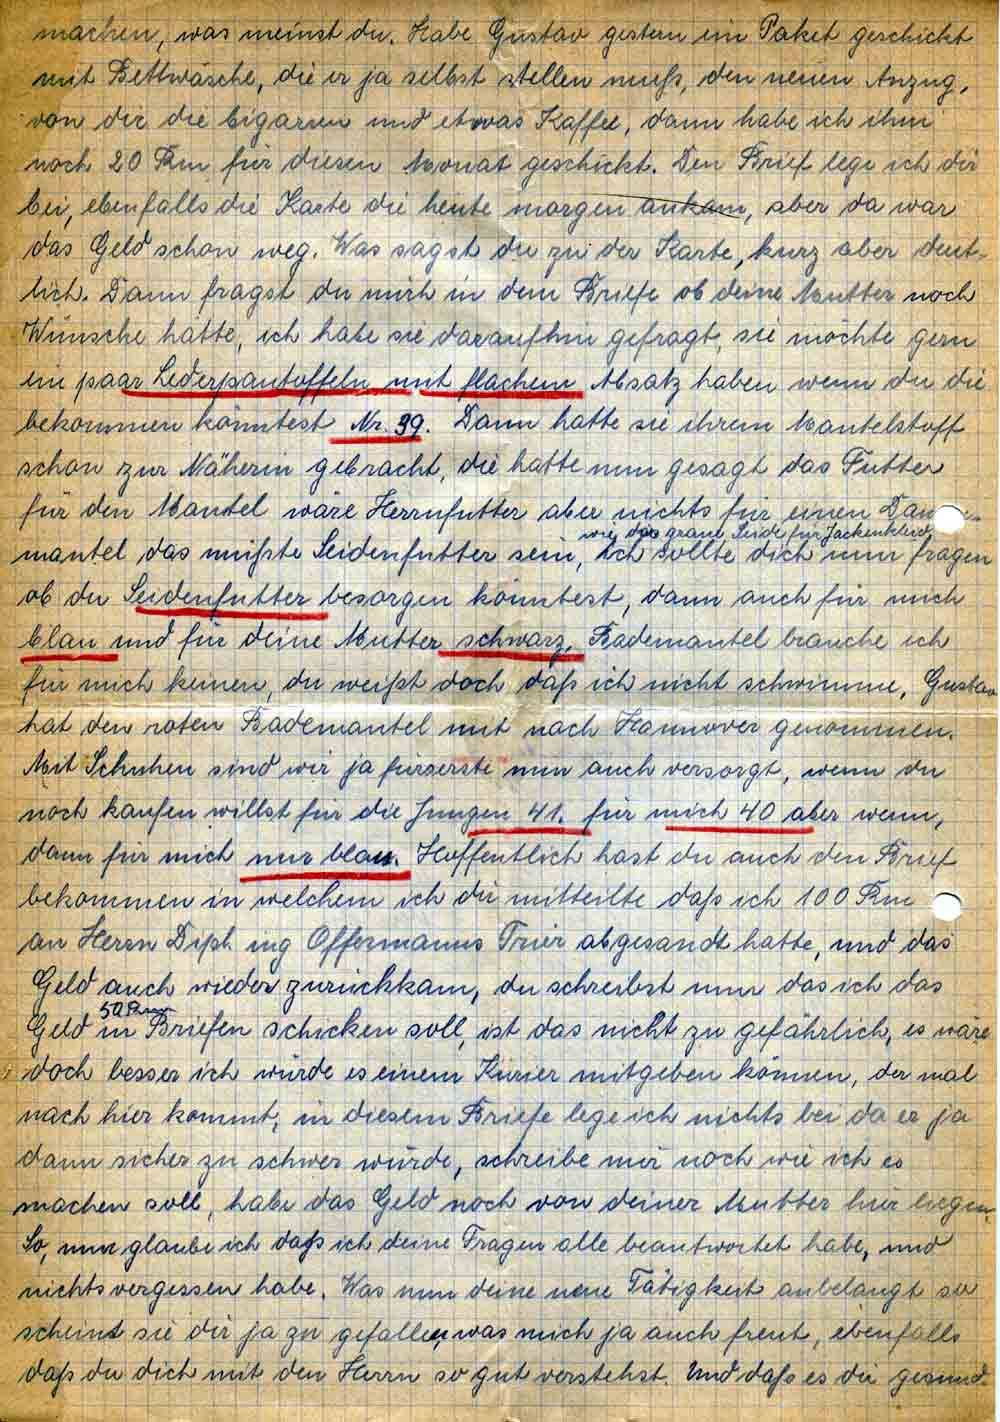 machen, was meinst du. Habe Gustav gestern ein Paket geschickt
mit Bettwäsche, die er ja selbst stellen muß, den neuen Anzug,
von dir die Cigarren und etwas Kaffee, dann habe ich ihm
noch 20 Rm für diesen Monat geschickt. Den Brief lege ich dir
bei, ebenfalls die Karte die heute morgen ankam, aber da war
das Geld schon weg. Was sagst du zu der Karte, kurz aber deut-
lich. Dann fragst du mich in dem Briefe ob deine Mutter noch
Wünsche hätte, ich habe sie daraufhin gefragt, sie möchte gern
ein paar Lederpantoffeln mit flachem Absatz haben wenn du die
bekommen könntest Nr. 39. Dann hatte sie ihrem Mantelstoff
schon zur Näherin gebracht, die hatte nun gesagt das Futter
für den Mantel wäre Herrnfutter aber nichts für einen Damen-
wie das graue Seide für Jackenkleid
mantel das müßte Seidenfutter sein, ich sollte dich nun fragen
ob du Seidenfutter besorgen könntest, dann auch für mich
blau und für deine Mutter schwarz. Bademantel brauche ich
für mich keinen, du weißt doch daß ich nicht schwimme, Gustav
hat den roten Bademantel mit nach Hannover genommen.
Mit Schuhen sind wir ja fürserste nun auch versorgt, wenn du
noch kaufen willst für die Jungen 41. für mich 40 aber wenn,
dann für mich nur blau. Hoffentlich hast du auch den Brief
bekommen in welchem ich dir mitteilte daß ich 100 Rm
an Herrn Diph. ing Offermanns Trier abgesandt hatte, und das
Geld auch wieder zurückkam, du schreibst nun das ich das
50 Rm
Geld in Briefen schicken soll, ist das nicht zu gefährlich, es wäre
doch besser ich würde es einem Kurier mitgeben können, der mal
nach hier kommt, in diesem Briefe lege ich nichts bei da er ja
dann sicher zu schwer würde, schreibe mir noch wie ich es
machen soll, habe das Geld noch von deiner Mutter hier liegen.
So, nun glaube ich daß ich deine Fragen alle beantwortet habe, und
nichts vergessen habe. Was nun deine neue Tätigkeit anbelangt so
scheint sie dir ja zu gefallen, was mich ja auch freut, ebenfalls
daß du dich mit den Herrn so gut verstehst. Und daß es dir gesund-